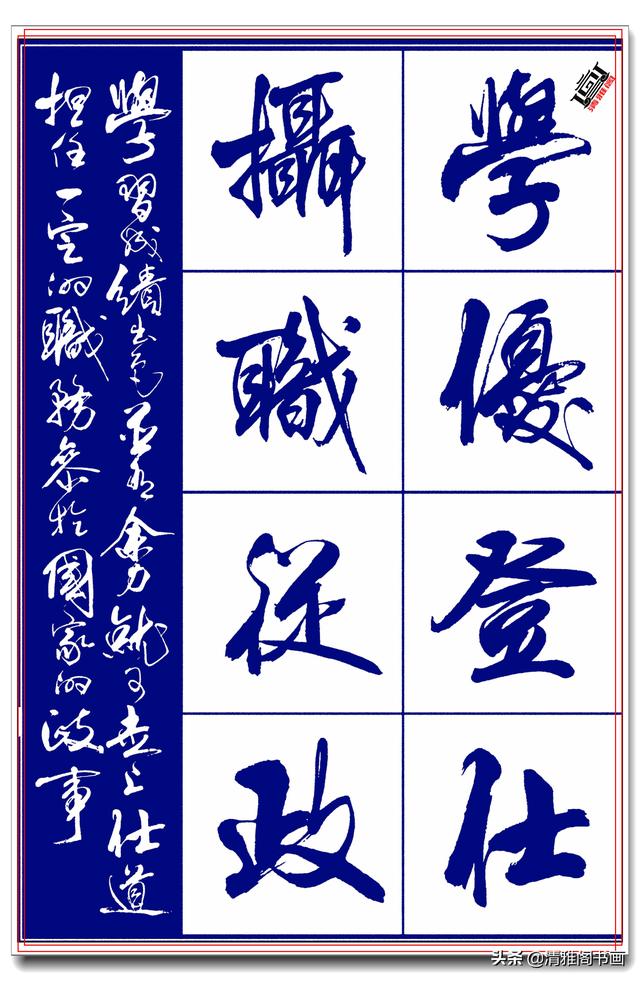 學優登仕
攝職從政
學習成績出色並有余力就可走上仕道
担任一定的職務參於國家的政事
头条@清雅阁书画